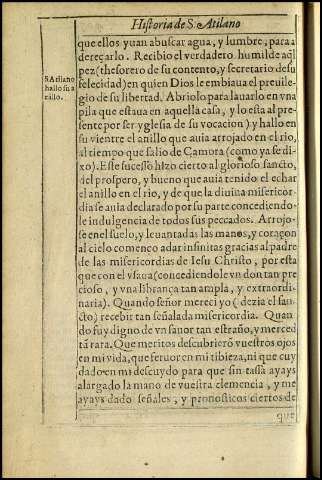 Historia de S. Atilano
que ellos yuan abuscar agua, y lumbre, para a
dereçarlo. Recibio el verdadero humilde aq̃l
pez (thesorero de su contento, y secretario de su
S Atilano
hallo su a
nillo.
felicidad) en quien Dios le embiaua el preuile-
gio de su libertad. Abriolo para lauarlo en vna
pila que estaua en aquella casa, y lo esta al pre-
sente por ser yglesia de su vocacion) y hallo en
su vientre el anillo que auia arrojado en el rio,
al tiempo que salio de Çamora (como ya se di-
xo). Este sucesso hizo cierto al glorioso sancto,
del prospero, y bueno que auia tenido el echar
el anillo en el rio, y de que la diuina misericor-
dia se auia declarado por su parte concediendo-
le indulgencia de todos sus peccados. Arrojo-
se en el suelo, y leuantadas las manos, y coraçon
al cielo comenco a dar infinitas gracias al padre
de las misericordias de Iesu Christo, por esta
que con el vsaua (concediendole vn don tan pre
cioso, y vna librança tan ampla, y extraordi-
naria). Quando señor mereci yo (dezia el san-
cto) recebir tan señalada misericordia. Quan-
do fuy digno de vn fauor tan estraño, y merced
tã rara. Que meritos descubrierõ vuestros ojos
en mi vida, que feruor en mi tibieza, ni que cuy
dado en mi descuydo para que sin tassa ayays
alargado la mano de vuestra clemencia, y me
ayays dado señales, y pronosticos ciertos de
que